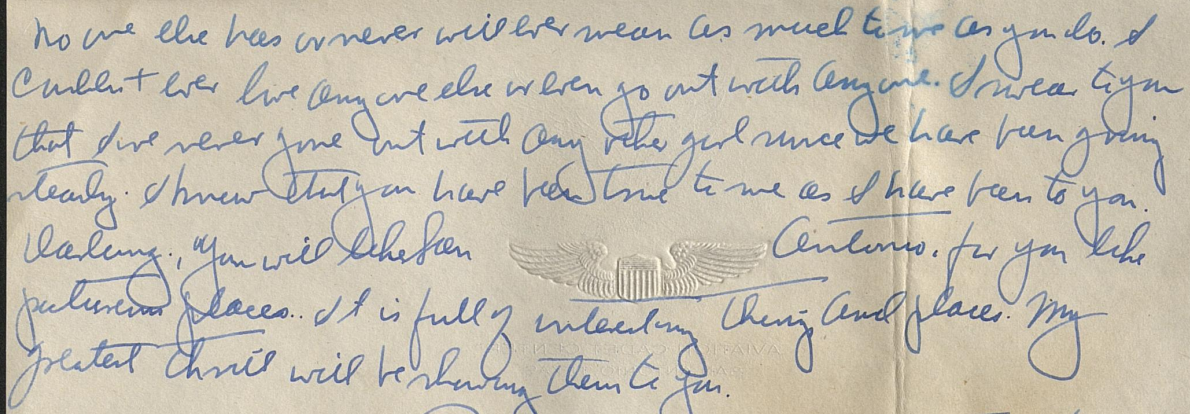 No one else has or never will ever mean as much to me as you do. I
Couldn't ever love anyone else or even go out with anyone. I swear to you
that I've never gone out with any other girl since we have been going
steady. I know that you have been true to me as I have been to you.
Darling, you will like San Antonio, for you like
picturesque places.. It is full of interesting things and places. My
greatest thrill will be showing them to you.